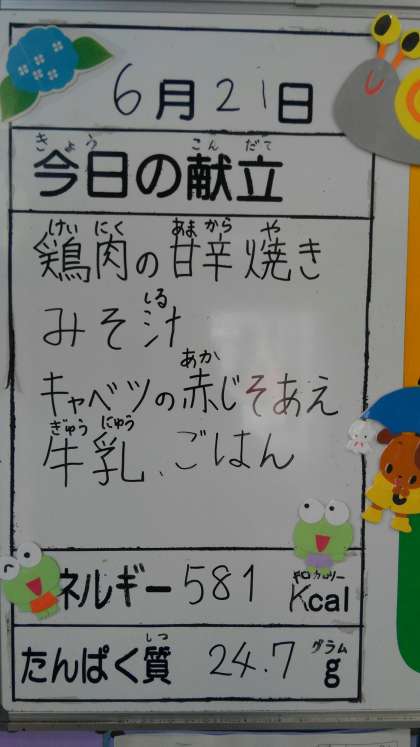 6月21日
きょう こんだて
今日の献立
けい にく あま から や
鶏肉の甘辛焼き
しる
みそ汁
あか
キャベツの赤じそあえ
ぎゅう にゅう
牛乳、ごはん
キロカロリー
ネルギー 581 Kcal
しつ グラム
たんぱく質 24.7 g